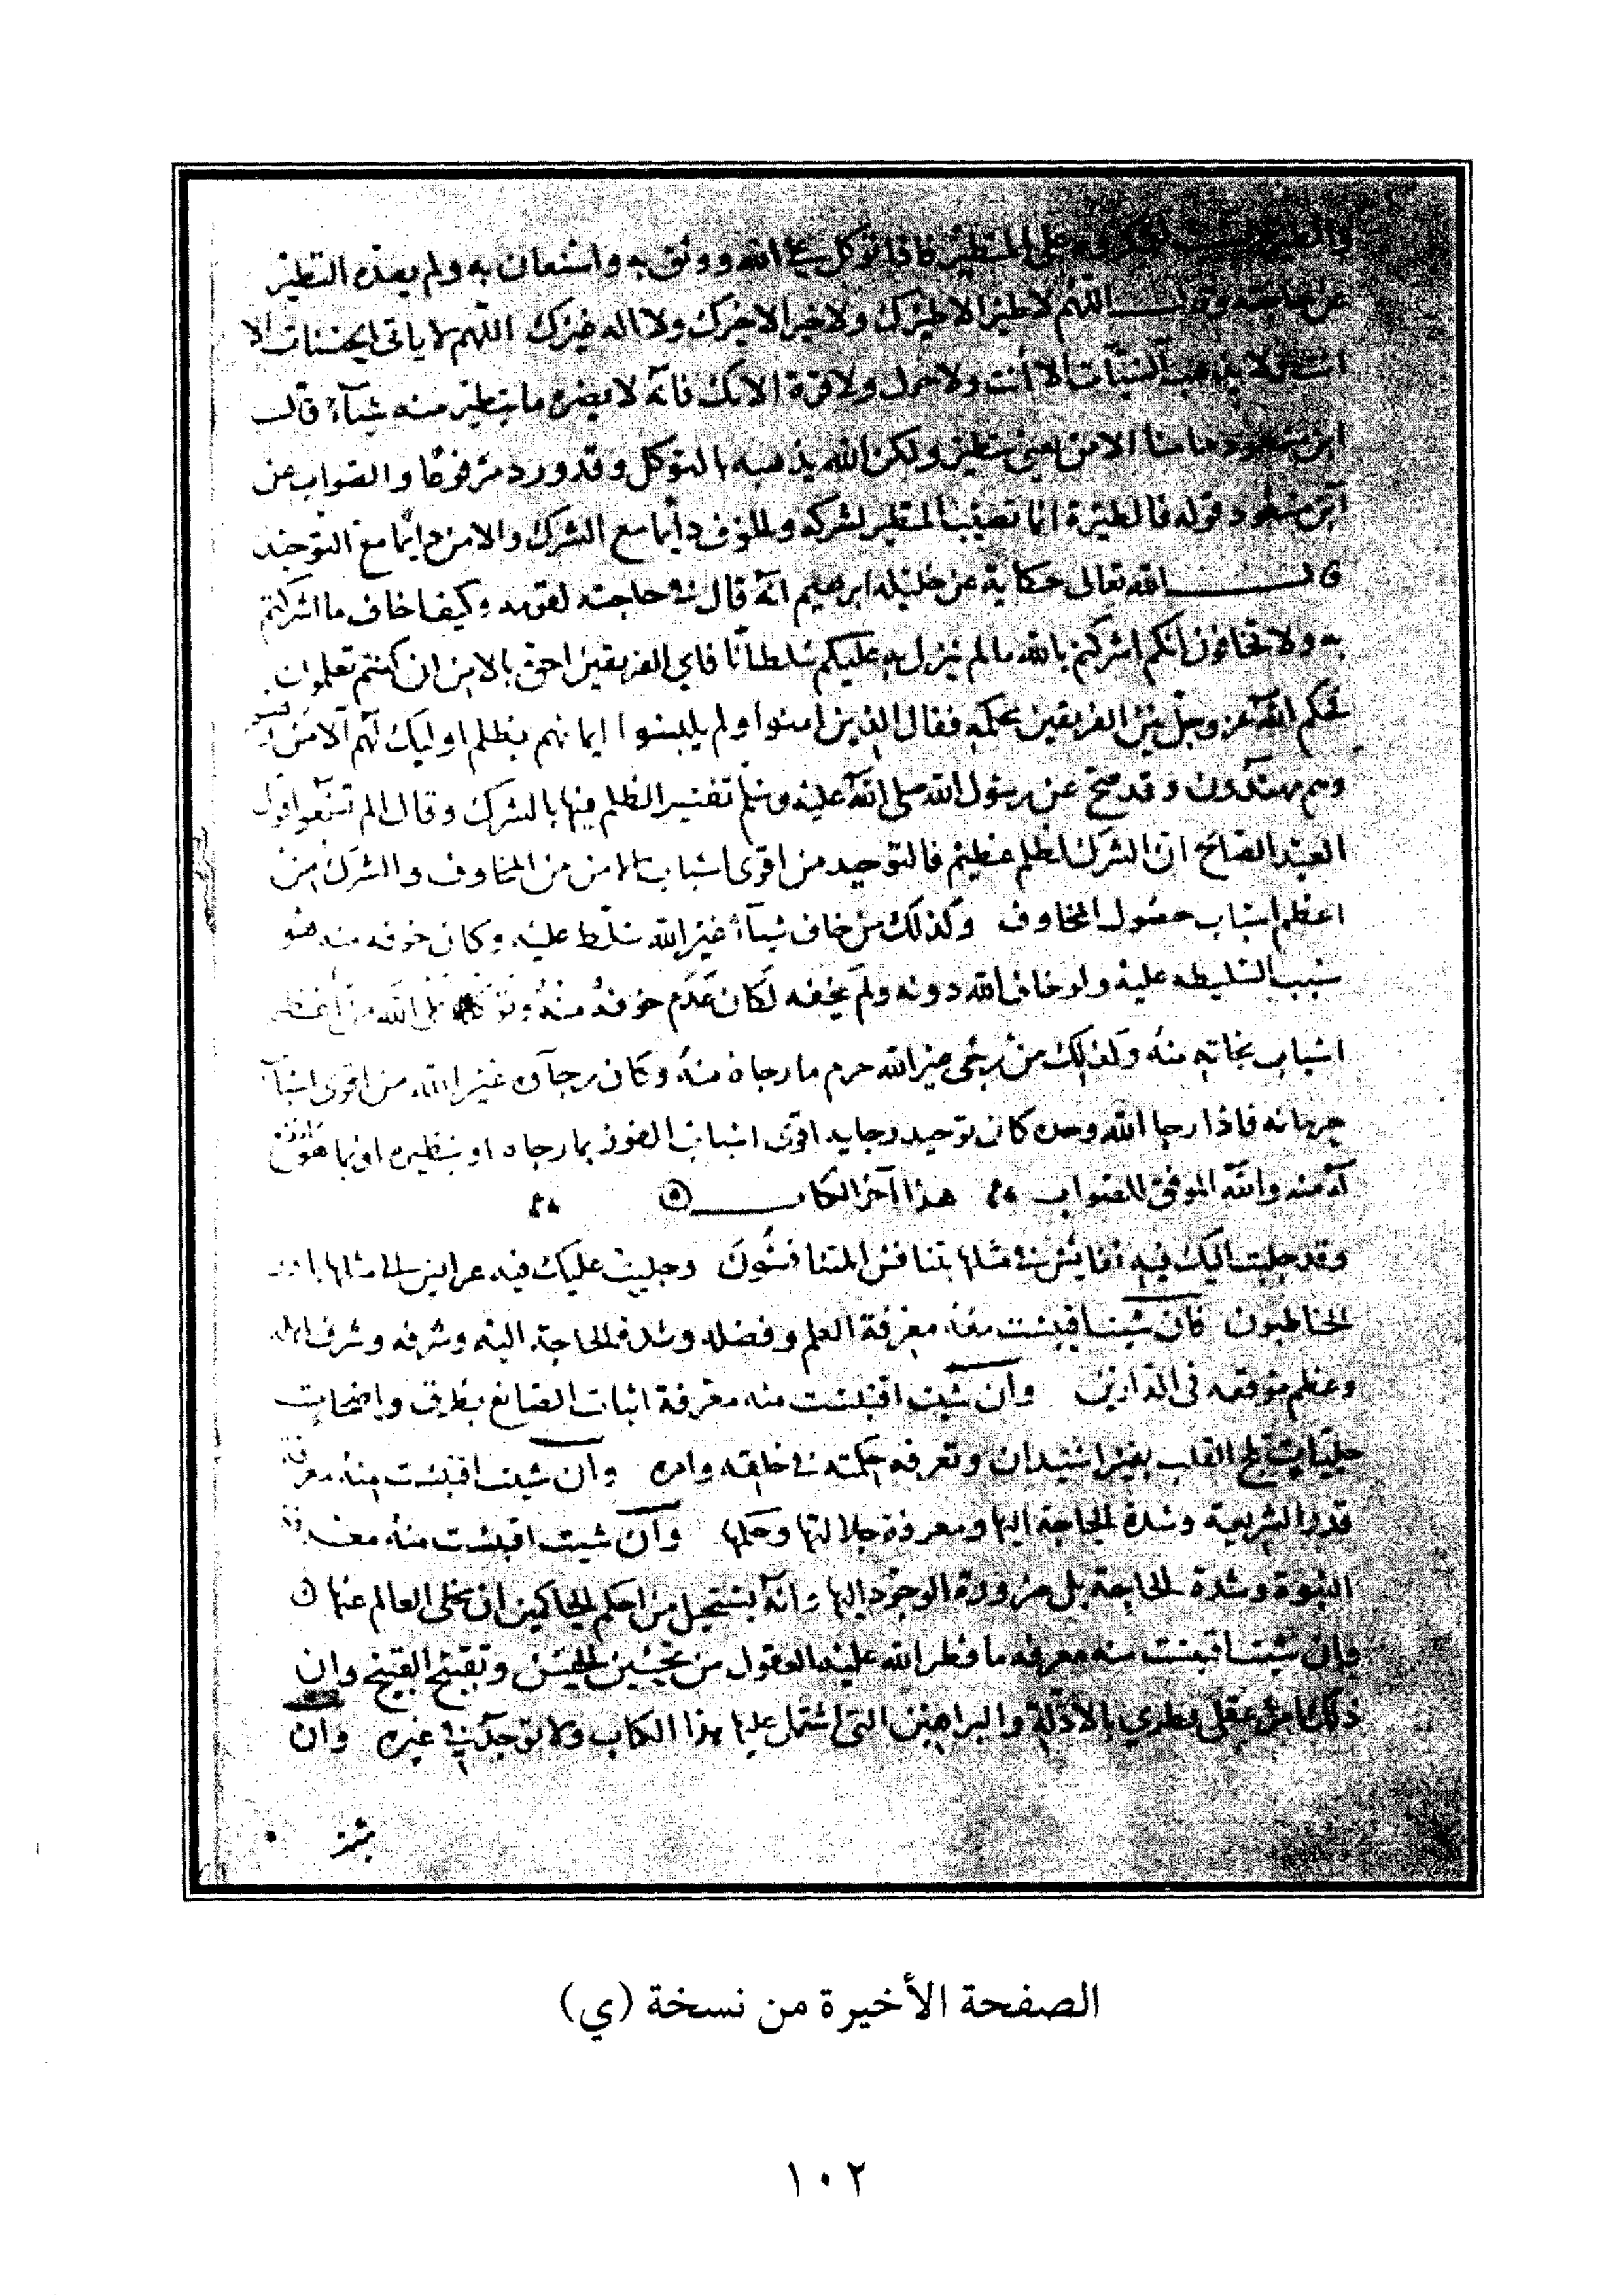 على المتطير فاذا توكل على الله ووثق به واستعان به ولم يصده التطير
عن حاجته وقال اللهم لا طير الا طيرك ولا خير الا خيرك ولا اله غيرك اللهم لا ياتي بالحسنات الا
انت ولا يذهب السيات الا انت ولا حول ولا قوة الا بك فانه لا يضره ما يتطير منه شيآ قال
ابن مسعود وما منا الا من يعني يتطير ولكن الله يذهبه بالتوكل وقد ورد مرفوعا والصواب عن
ابن مسعود قوله فالطيرة انما تصيب المتطير لشركه والخوف دايما مع الشرك والامن دايما مع التوحيد
قال الله تعالى حكاية عن خليله ابرهيم انه قال في حاجته لقومه وكيف اخاف ما اشركتم
به ولا تخافون انكم اشركتم بالله ما لم ينزل به عليكم سلطانا فاي الفريقين احق بالامن ان كنتم تعلمون
فحكم الله عز وجل بين الفريقين بحكمه فقال الذين امنوا ولم يلبسوا ايمانهم بظلم اوليك لهم الامن
وهم مهتدون وقد صح عن رسول الله صلى الله عليه وسلم تفسير الظلم فيها بالشرك وقال الم تسمعوا قول
العبد الصالح ان الشرك لظلم عظيم فالتوحيد من اقوى اسباب الامن من المخاوف والشرك من
اعظم اسباب حصول المخاوف وكذلك من خاف شيآ غير الله سلط عليه وكان خوفه منه هو
سبب لتسليطه عليه ولو خاف الله دونه ولم يخفه لكان عدم خوفه منه وتوكله على الله من اعظم
اسباب نجاته منه وكذلك من رجى غير الله حرم ما رجاه منه وكان رجآوه غير الله من اقوى اسباب
حرمانه فاذا رجا الله وحده كان توحيد رجايه اقوى اسباب الفوز بما رجاه او بنظيره او بما هو انفع
له منه والله الموفق للصواب هذا آخر الكتاب
وقد جلبت اليك فيه نفايس في مثلها يتنافس المتنافسون وجليت عليك فيه عرايس الى مثلها بادر
الخاطبون فان شيت اقتبست منه معرفة العلم وفضله وشدة الحاجة اليه وشرفه وشرف اهله
وعظم موقعه في الدارين وان شيت اقتبست منه معرفة اثبات الصانع بطرق واضحات
جليات تلج القلب بغير استيذان ومعرفة حكمته في خلقه وامره وان شيت اقتبست منه معرفة
قدر الشريعة وشدة الحاجة اليها ومعرفة جلالتها وحكمها وان شيت اقتبست منه معرفة
النبوة وشدة الحاجة بل ضرورة الوجود اليها وانه يستحيل من احكم الحاكمين ان يخلى العالم عنها
وان شيت اقتبست منه معرفة ما فطر الله عليه العقول من تحسين الحسن وتقبيح القبيح وان
ذلك امر عقلي فطري بالادلة والبراهين التي اشتمل عليها هذا الكتاب ولا توجد في غيره وان
شيت
الصفحة الأخيرة من نسخة (ي)
١٠٢